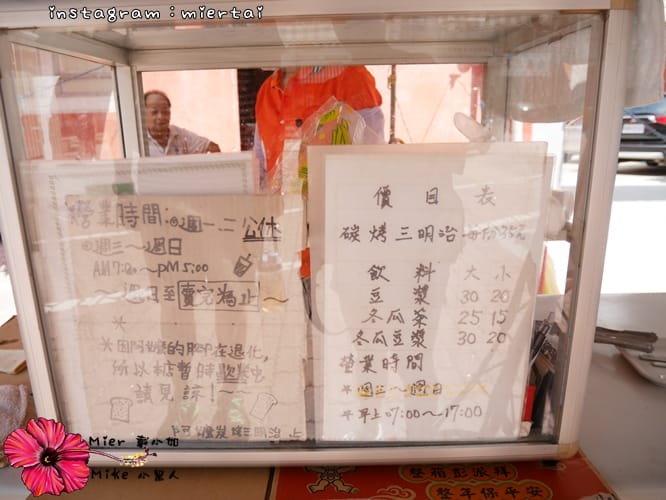 instagram：miertai
營業時間：週一.二公休
週三～週日
AM7:00～PM5:00
～週日至賣完為止～
※
※因阿嬤的腳在退化，
所以本店暫時歇業
請見諒！～
阿嬤炭烤三明治 上
價目表
碳烤三明治 一份35元
飲料 大 小
豆漿 30 20
冬瓜茶 25 15
冬瓜豆漿 30 20
營業時間
週三～週日
早上07:00～17:00
Mier 彭小如
Mike 小黑人
整箱彭派拜
整年保平安